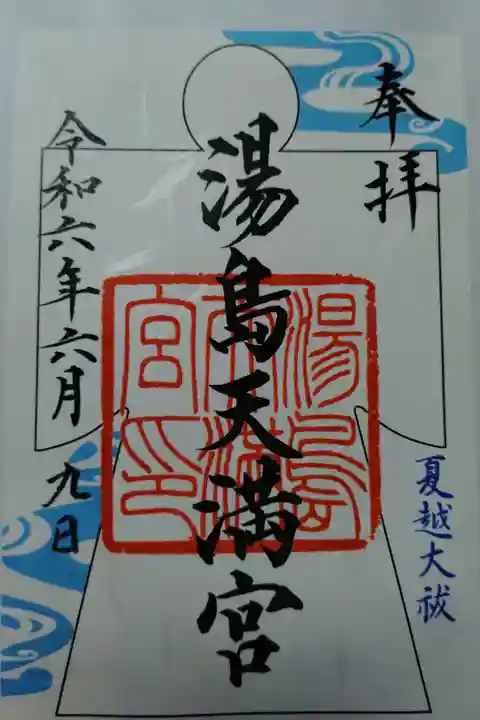 奉拝
湯島天満宮
湯島天満宮印
夏越大祓
令和六年六月九日